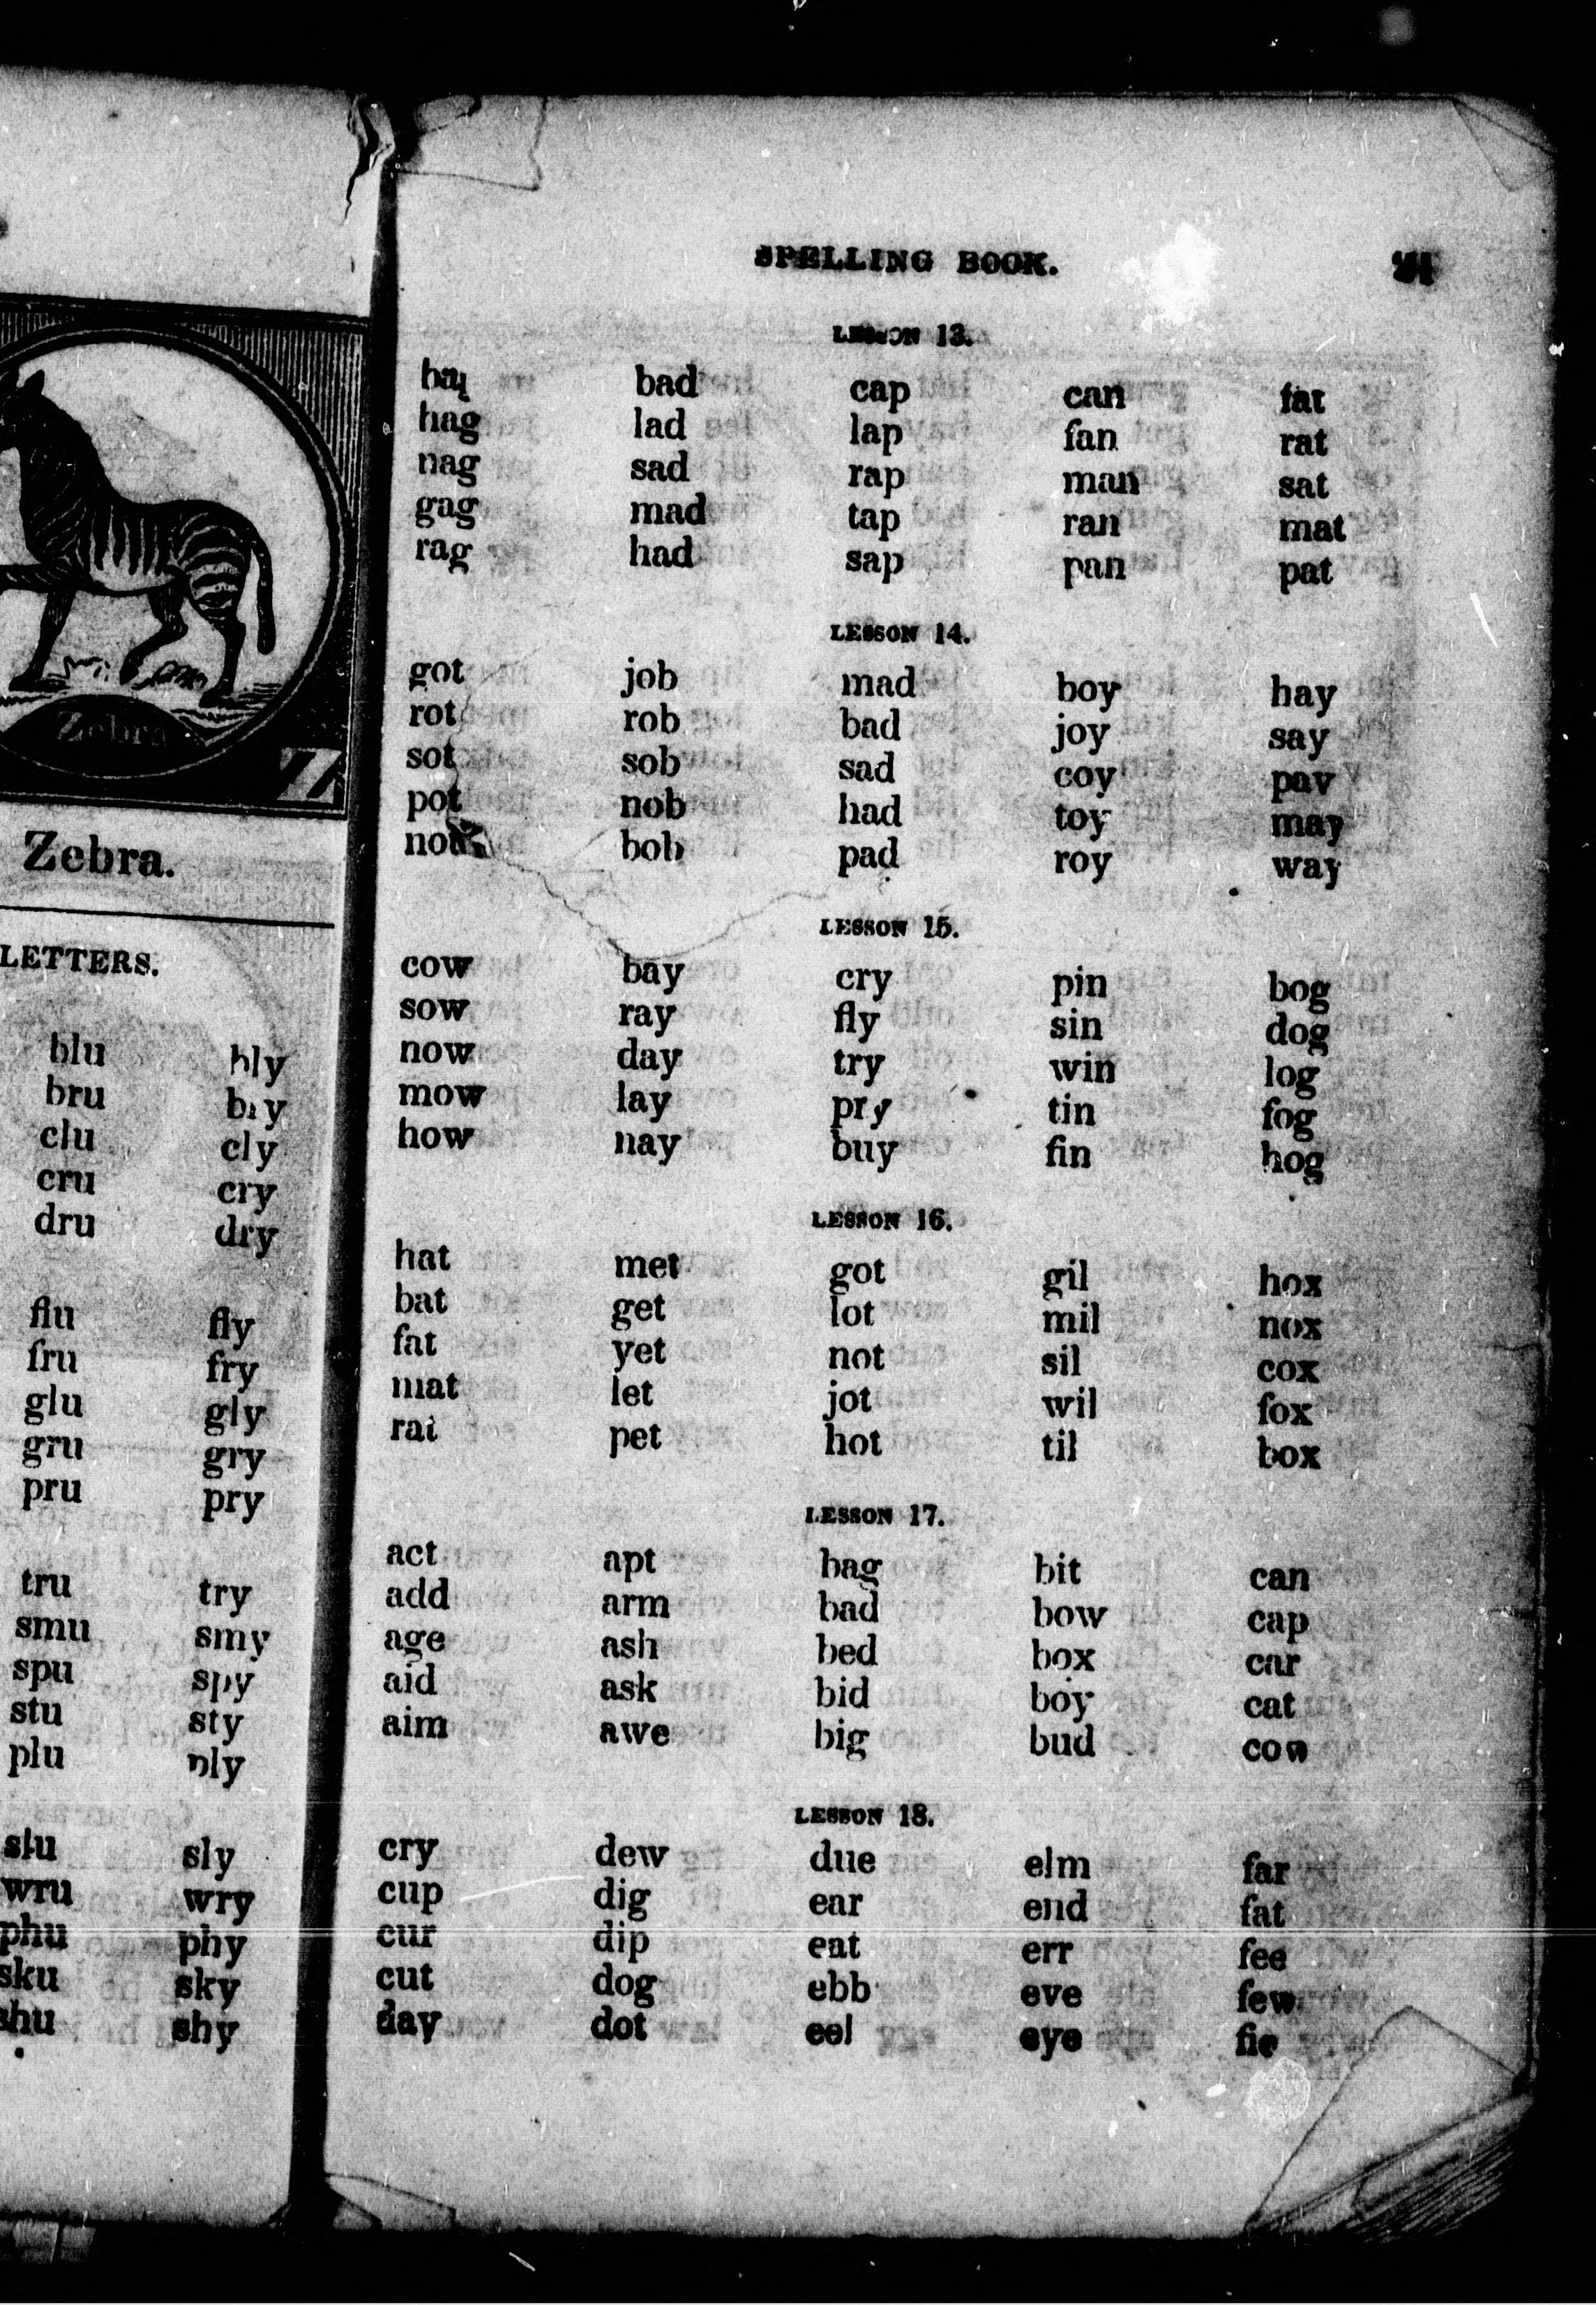 Zebra
Z
Zebra.
LETTERS.
blu bly
bru bry
clu cly
cru cry
dru dry
flu fly
fru fry
glu gly
gru gry
pru pry
tru try
smu smy
spu spy
stu sty
plu ply
slu sly
wru wry
phu phy
sku sky
shu shy
SPELLING BOOK.
LESSON 13.
bad cap can fat
hag lad lap fan rat
nag sad rap man sat
gag mad tap ran mat
rag had sap pan pat
LESSON 14.
got job mad boy hay
rot rob bad joy say
sot sob sad coy pay
pot nob had toy may
not bob pad roy way
LESSON 15.
cow bay cry pin bog
sow ray fly sin dog
now day try win log
mow lay pry tin fog
how nay buy fin hog
LESSON 16.
hat met got gil hox
bat get lot mil nox
fat yet not sil cox
mat let jot wil fox
rat pet hot til box
LESSON 17.
act apt bag bit can
add arm bad bow cap
age ash bed box car
aid ask bid boy cat
aim awe big bud cow
LESSON 18.
cry dew due elm far
cup dig ear end fat
cur dip eat err fee
cut dog ebb eve few
day dot eel eye fie